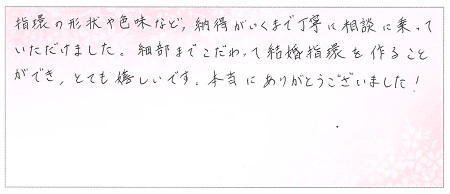 指環の形状や色味など,納得がいくまで丁寧に相談に乗って
いただけました。細部までこだわって結婚指環を作ること
ができ,とても嬉しいです。本当にありがとうございました!